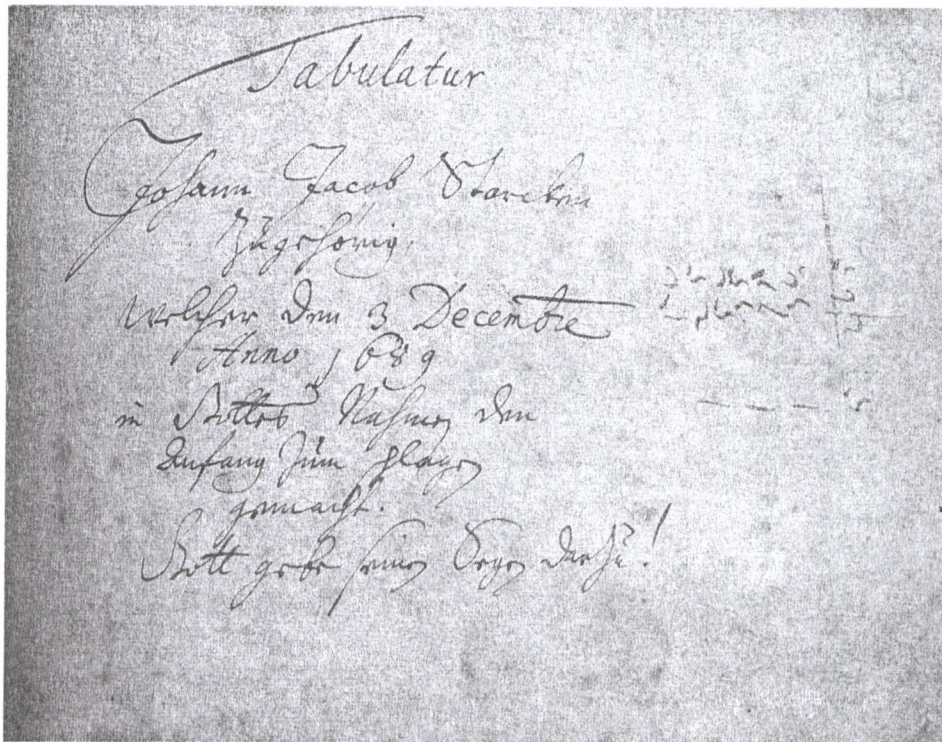 Tabulatur
Johann Jacob Starcken
Zugehörig,
welcher den 3 Decembre
Anno 1689
in Gottes Nahmen den
Anfang zum schlagen
gemacht.
Gott gebe seinen Segen darzu!